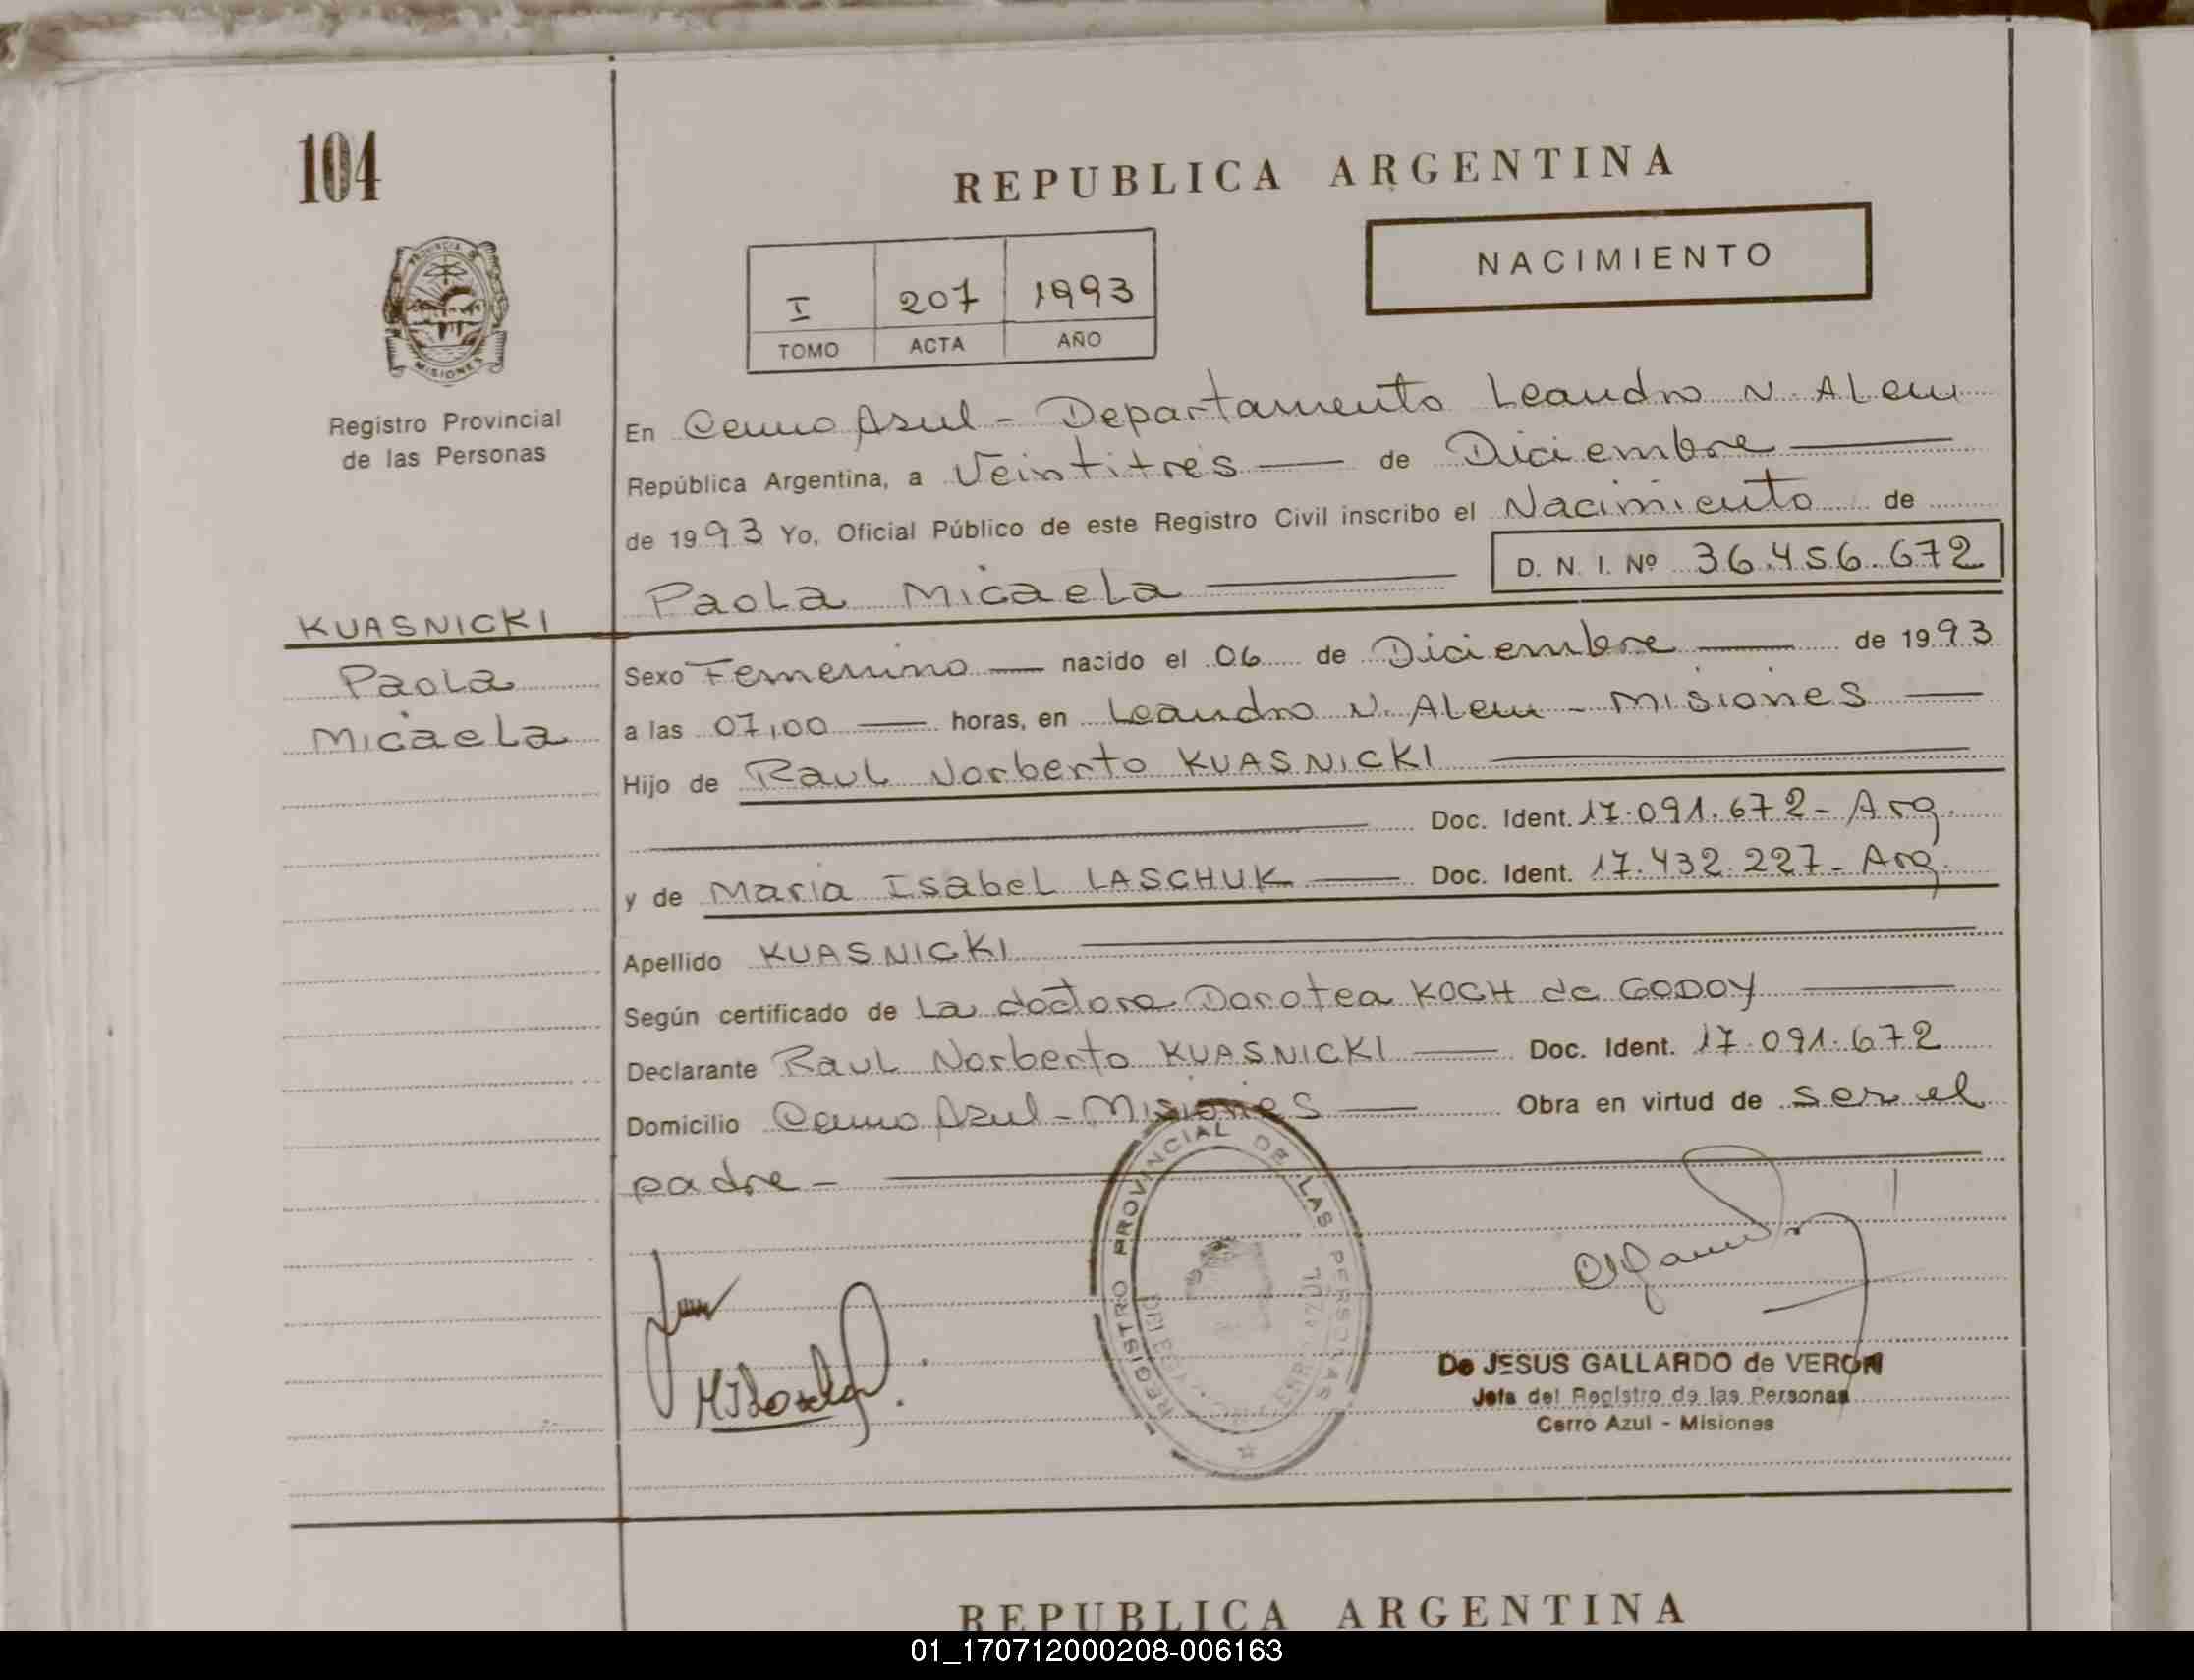 104
REPUBLICA ARGENTINA
NACIMIENTO
I 207 1993
TOMO ACTA AÑO
PROVINCIA DE
MISIONES
Registro Provincial
de las Personas
En Cerro Azul - Departamento Leandro N. Alem
República Argentina, a Veintitrés de Diciembre
de 1993 Yo, Oficial Público de este Registro Civil inscribo el Nacimiento de
Paola Micaela D. N. I. Nº 36.456.672
KUASNICKI
Paola
Micaela
Sexo Femenino nacido el 06 de Diciembre de 1993
a las 07,00 horas, en Leandro N. Alem - Misiones
Hijo de Raul Norberto KUASNICKI
Doc. Ident. 17.091.672 - Arg.
y de Maria Isabel LASCHUK Doc. Ident. 17.432.227 - Arg.
Apellido KUASNICKI
Según certificado de La doctora Dorotea KOCH de GODOY
Declarante Raul Norberto KUASNICKI Doc. Ident. 17.091.672
Domicilio Cerro Azul - Misiones Obra en virtud de ser el
padre -
REGISTRO PROVINCIAL DE LAS PERSONAS
De JESUS GALLARDO de VERON
Jefa del Registro de las Personas
Cerro Azul - Misiones
REPUBLICA ARGENTINA
01_170712000208-006163